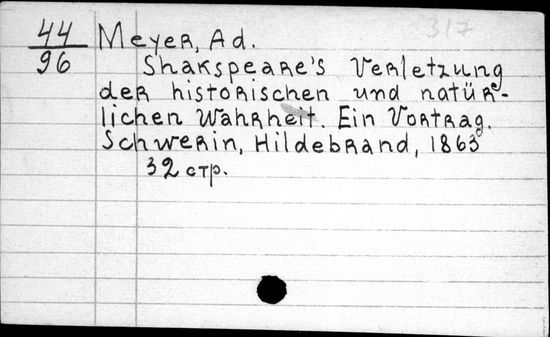 317
44 Meyer, Ad.
96 Shakspeare's Verletzung
der historischen und natür-
lichen Wahrheit. Ein Vortrag.
Schwerin, Hildebrand, 1863
32 стр.